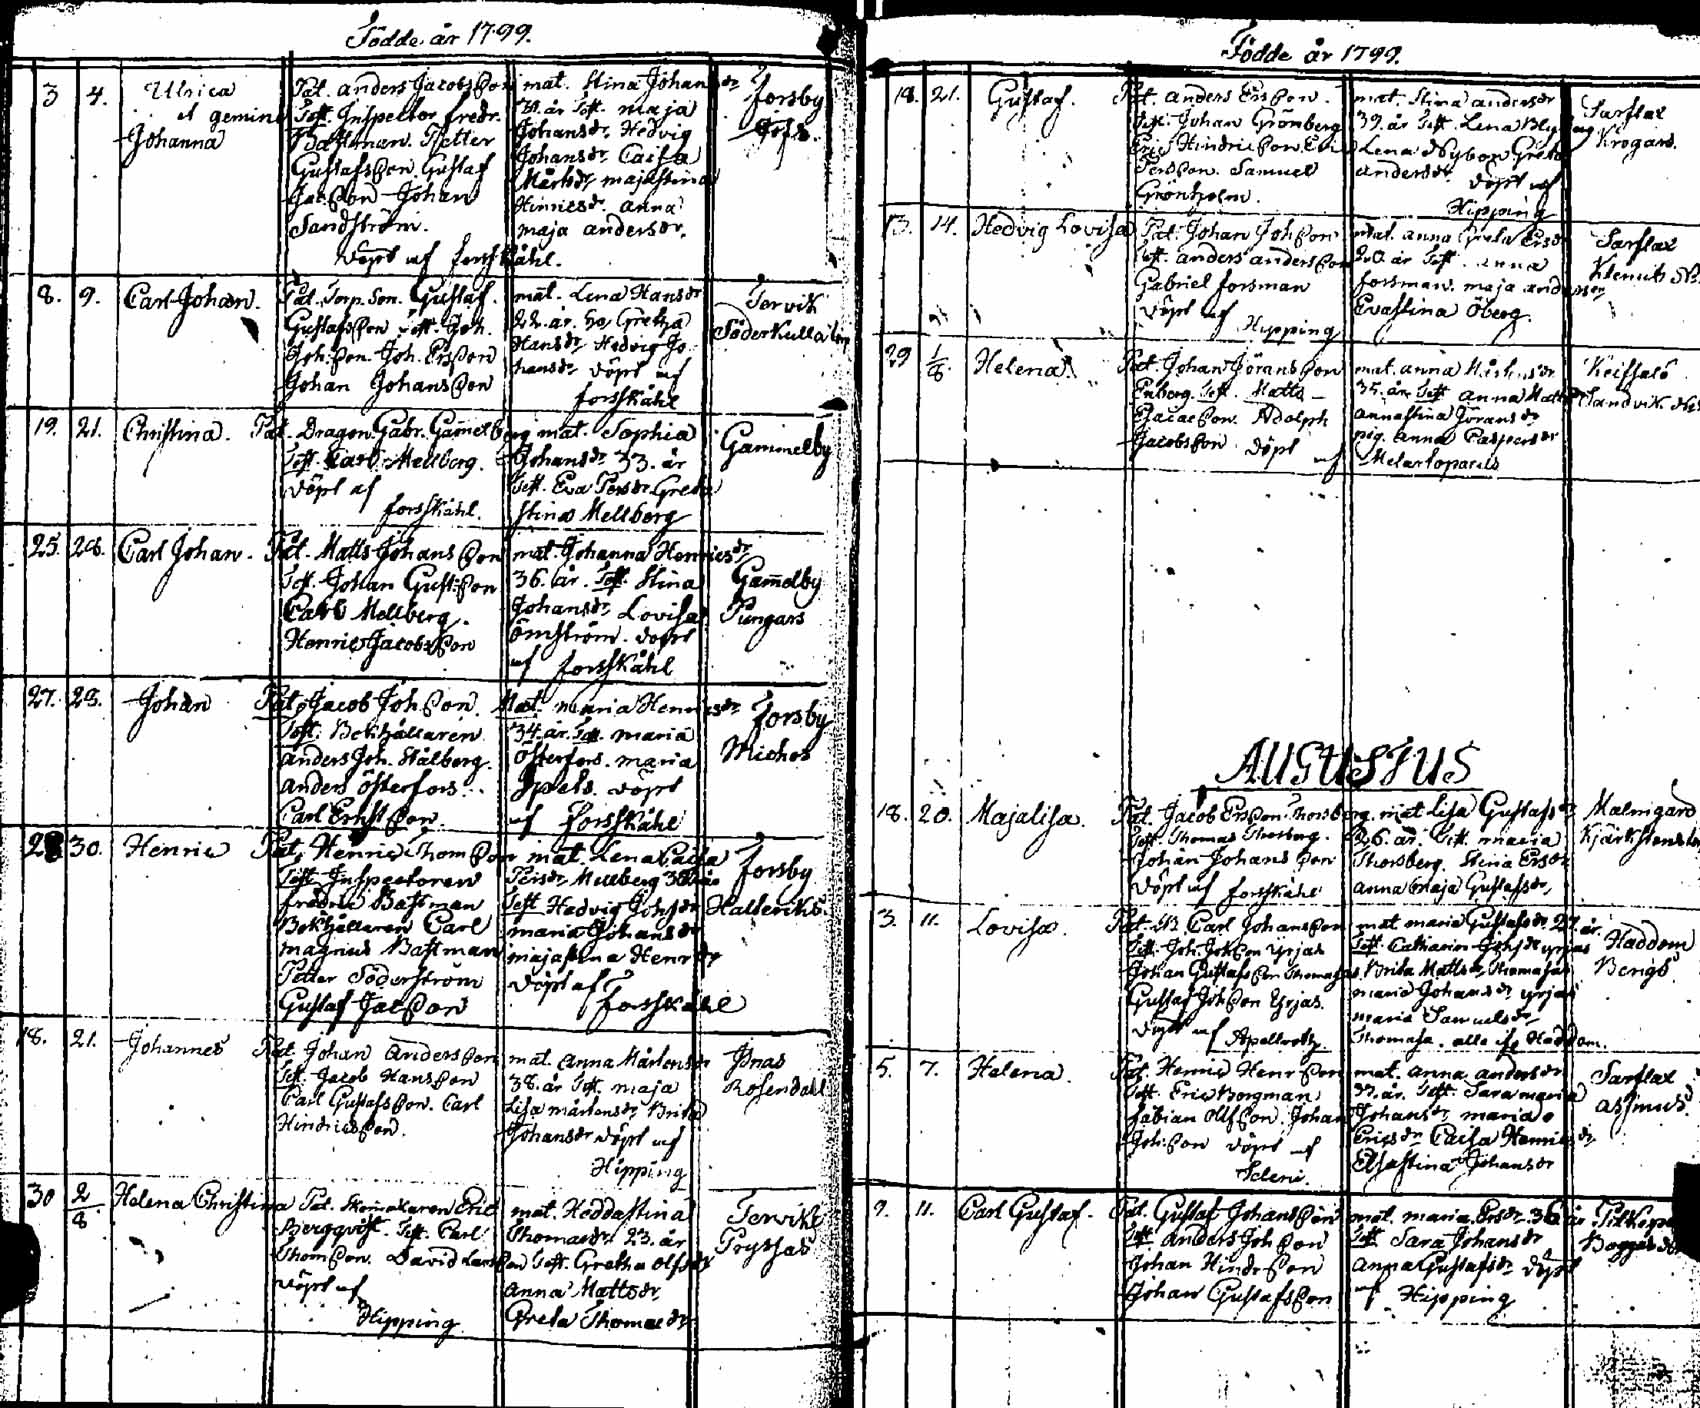 Födde år 1799.
3 4. Ulrica et gemina Johanna
Pat. Anders Jacobsson
Test. Inspector Fredr.
Bastman. Petter
Gustafsson Gustaf
Jacsson Johan
Sandström.
Döpt af Forsskåhl.
mat. Stina Johansdr
31. år Test. Maja
Johansdr Hedvig
Johansdr Caisa
Mårtsdr Majastina
Hinricsdr. Anna
Maja Andersdr.
Forsby
8. 9. Carl Johan.
Pat. Torp. Son. Gustaf
Gustafsson Test. Joh.
Johsson. Joh. Ersson
Johan Johansson
mat. Lena Hansdr
22. år. Gretha
Hansdr Hedvig Jo-
hansdr Döpt af
Forsskåhl
Tervik
Söderkulla
19. 21. Christina.
Pat. Dragon. Gabr. Gam̄elberg
Test. Carl Mellberg.
Döpt af
Forsskåhl.
mat. Sophia
Johansdr 33. år
Test. Eva Persdr Greta
Stina Mellberg
Gammelby
25. 28. Carl Johan.
Pat. Matts Johansson
Test. Johan Gustsson
Carl Mellberg.
Henric Jacobsson
mat. Johanna Henricsdr
36. år. Test. Stina
Johansdr Lovisa
Önström. Döpt
af Forsskåhl
Gam̄elby
Pungars
27. 28. Johan
Pat. Jacob Johsson.
Test. Bokhållaren
Anders Joh. Stålberg.
Anders Österfors.
Carl Ernstsson.
Mat. Maria Henricsdr
34. år. Test. Maria
Österfors. Maria
Döpt
af Forsskåhl
Forsby
Michos
30. Henric
Pat. Henric Thomsson
Test. Inspectoren
Fredric Bastman
Bokhållaren Carl
Magnus Bastman
Petter Söderström
Gustaf Jacsson
mat. Lena Caisa
Persdr Mellberg
Test. Hedvig Johsdr
Maria Johansdr
Majastina Henrsdr
Döpt af
Forsskåhl
Forsby
18. 21. Johannes
Pat. Johan Andersson
Test. Jacob Hansson
Carl Gustafsson. Carl
Hindricsson.
mat. Anna Mårtensdr
38. år Test. Maja
Lisa Mårtensdr Brita
Johansdr Döpt af
Hipping
Isnäs
Rosendahl
30 2/8 Helena Christina
Pat. Skomakaren Eric
Bergqvist. Test. Carl
Thomsson. David Larsson
Döpt af
Hipping
mat. Heddastina
Thomasdr. 23. år
Test. Gretha Olfsdr
Anna Mattsdr
Greta Thomasdr
Tervik
Pryssas
Födde år 1799.
18. 21. Gustaf.
Pat. Anders Ersson.
Test. Johan Grönberg
Eric Hindricsson Eric
Persson. Samuel
Grönholm.
mat. Stina Andersdr
39. år Test. Lena
Lena Nybom Greta
Andersdr Döpt af
Hipping
Sarflax
Krogars.
13. 14. Hedvig Lovisa
Pat. Johan Johsson
Test. Anders Andersson
Gabriel Forsman
Döpt af Hipping
mat. Anna Greta Ersdr
20. år Test. Anna
Forsman. Maja Andersdr
Evastina Öberg.
Sarflax
29 1/8 Helena.
Pat. Johan Jöransson
Enberg. Test. Matts
Isacsson. Adolph
Jacobsson Döpt af
mat. Anna
35. år Test. Anna
Annastina Jöransdr
pig. Anna Caspersdr
Keitsalö
Sandvik
AUGUSTUS
18. 20. Majalisa.
Pat. Jacob Ersson Thorsberg.
Test. Thomas Thorsberg.
Johan Johansson
Döpt af Forsskåhl
mat Lisa Gustafsdr
26. år. Test. Maria
Thorsberg. Stina Ersdr
Anna Maja Gustafsdr
Malmgård
3. 11. Lovisa.
Pat. Carl Johansson
Test. Joh. Johsson Yrjas
Johan Gustafsson Thomasas
Gustaf Johsson Yrjas.
Döpt af Apellroth.
mat Maria Gustafsdr 27. år.
Test. Catharina Johsdr Yrjas
Brita Mattsdr Thomasas
Maria Johansdr Yrjas
Maria Samuelsdr
Thomasa. alle if. Haddom.
Haddom
Bengs
5. 7. Helena.
Pat. Henric Henrsson
Test. Eric Borgman
Fabian Olfsson. Johan
Johsson Döpt af
Seleni.
mat. Anna Andersdr
år. Test. Sara Maria
Johansdr Maria
Ericsdr Caisa Henricsdr
Johansdr
Sarflax
Assmus.
9. 11. Carl Gustaf.
Pat. Gustaf Johansson
Test. Anders Johsson
Johan Hindrsson
Johan Gustafsson
mat. Maria Ersdr 36 år
Test Sara Johansdr
Anna Gustafsdr Döpt
af Hipping